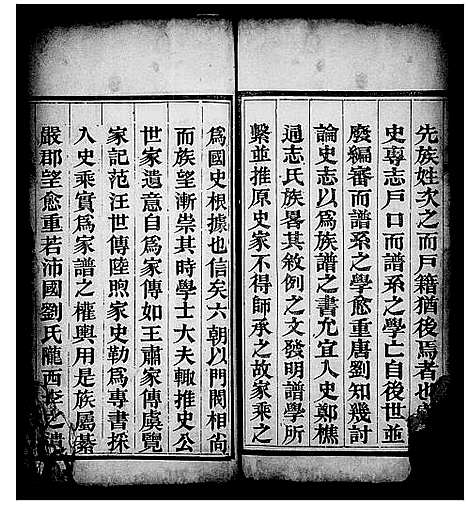 先族姓次之而戸籍猶後焉者也
史專志戸口而譜系之學亡自後世並
廢編審而譜系之學愈重唐劉知幾討
論史志以爲族譜之書允宜入史鄭樵
通志氏族畧其敘例之文發明譜學所
繫並推原史家不得師承之故家乘之
爲國史根據也信矣六朝以門閥相尚
而族望漸崇其時學士大夫輒推史公
世家遺意自爲家傳如王肅家傳虞覽
家記范汪世傳陸煦家史勒爲專書採
入史乘實爲家譜之權輿用是族屬綦
嚴郡望愈重若沛國劉氏隴西李之